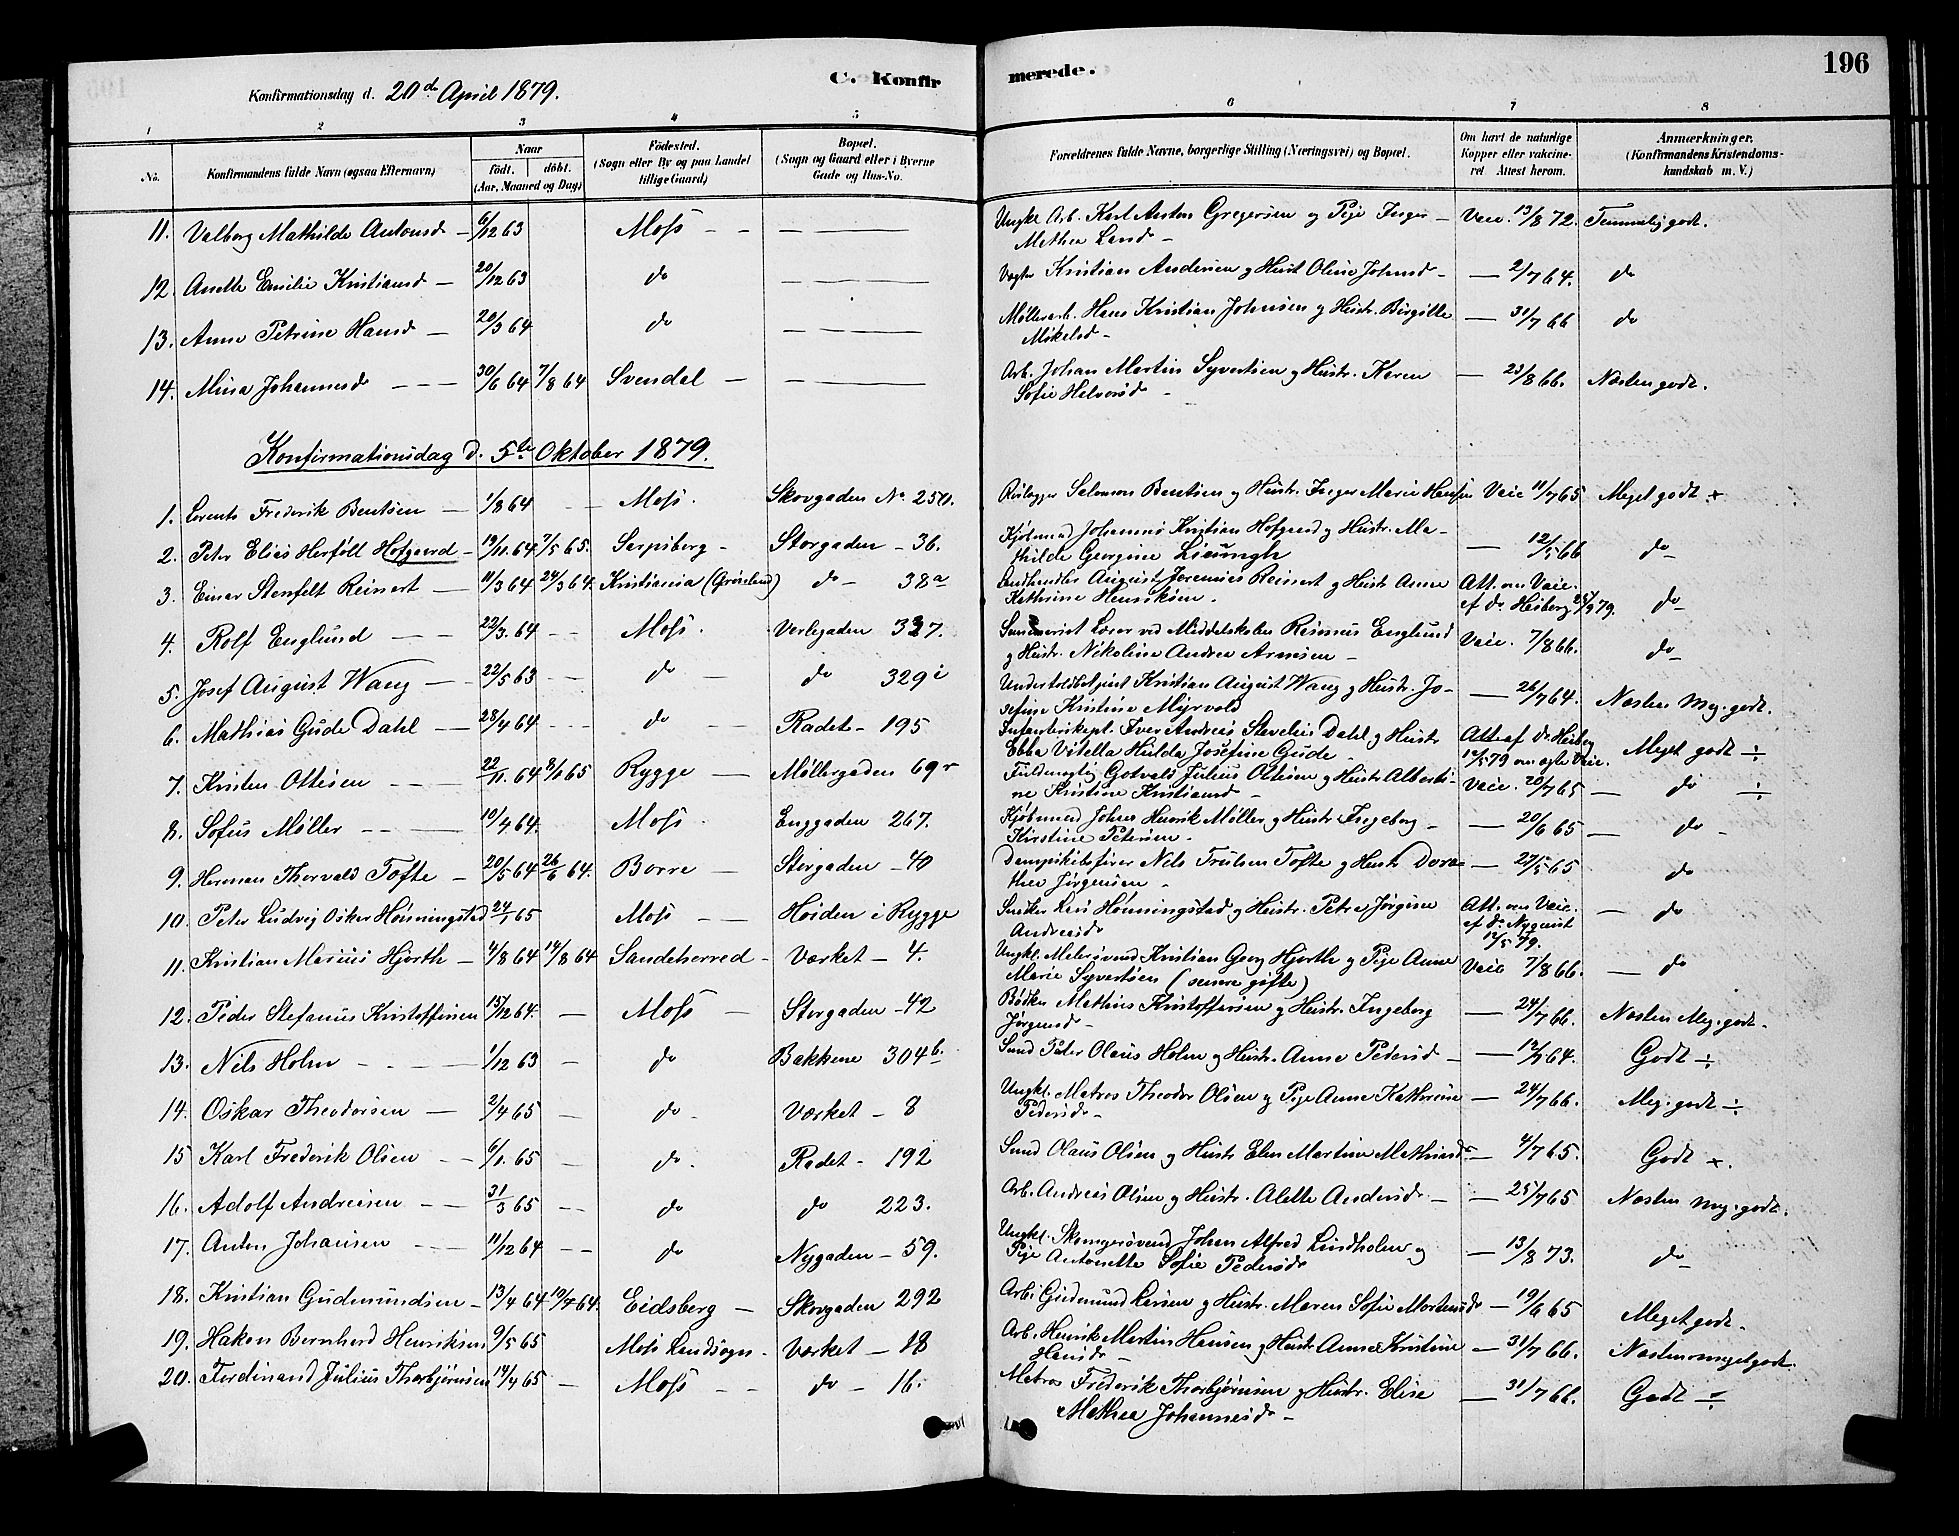 C. Konfirmerede.
196
Konfirmationsdag d. 20de April 1879.
1 2 3 4 5 6 7 8
No. Konfirmandens fulde Navn (ogsaa Efternavn) Naar födt. döbt. (Aar, Maaned og Dag) Födested. (Sogn eller By og paa Landet tillige Gaard) Bopæl. (Sogn og Gaard eller i Byerne Gade og Hus-No. Forældrenes fulde Navne, borgerlige Stilling (Næringsvei) og Bopæl. Om havt de naturlige Kopper eller vakcineret Attest herom. Anmærkninger. (Konfirmandens Kristendomskundskab m. V.)
11. Valborg Mathilde Antonsd — 6/12 63 Moss — — — Ungkl. Arb. Karl Anton Gregersen og Pige Inger — Vaic. 13/8 72. Temmelig godt.
Mathea Land —
12. Anette Emilie Kristiansd — 20/12 63 do — — — Kristian Andersen og Hust. Oline Johnsd — — 2/7 64. do
13. Anne Petrine Hansd — 20/3 64 do — — — Møllerarb. Hans Kristian Johnsen og Hustr. Birgitte — 31/7 66 do
Mikelsd —
14. Mina Johannesd — — — 30/6 64 7/8 64 Svendal — — — — Arb. Johan Martin Syvertsen og Hustr. Karen — 23/8 66. Næsten godt.
Sofie Halvorsd —
Konfirmationsdag d. 5te Oktober 1879.
1. Lorents Frederik Bentsen — 1/8 64 — — Moss. Skovgaden No. 250. Salomon Bentsen og Hustr. Inger Marie Hansen Vaic 11/7 65 Meget godt +
2. Peter Elias Herföll Hofgaard — 19/11 64 7/5 65. Sarpsborg — Storgaden — 36. Kjøbmand Johannes Kristian Hofgaard og Hustr. Ma— — 12/5 66 do —
thilde Georgine
3. Einar Stenfelt Reinert — 11/3 64 24/3 64. Kristiania (Grönland) do — 38a Landhandler August Jeremias Reinert og Hustr. Anne Att. om Vaic. do —
Kathrine Henriksen. af Dr. Heiberg 25/9 79.
4. Rolf Englund — — 22/3. 64 — — Moss. Værlegaden 327. Lærer ved Middelskolen Rasmus Englund Vaic. 7/8 66. do —
og Hustr. Nikoline Andrea Arnesen —
5. Josef August Wang — 22/5 63 — — do — do 329 i Undertoldbetjent Kristian August Wang og Hustr. Jo— — 26/7 64. Næsten Meg. godt.
sefine Kristine Myrvold
6. Mathias Gude Dahl — 28/4 64 — — do — Radet — 195 Infanterikapt. Iver Andreas Stavelin Dahl og Hustr. Att. af Dr. Heiberg Meget godt ÷
Ebba Vitella Hulda Josefine Gude — 12/5 79 om Vaic.
7. Kristen Ottesen — — 22/11. 64 8/1 65 Rygge — Møllergaden 69 Fuldmægtig Gotvald Julius Ottesen og Hustr. Alberti— Vaic. 20/7 65 — do ÷
ne Kristine Kristiansd —
8. Sofus Møller — — 10/4 64. Moss. Enggaden 267. Kjøbmand Johan Henrik Møller og Hustr. Ingeborg — — 20/6 65 — do —
Kirstine Petersen —
9. Herman Thorvald Tofte — 20/5 64 26/6 64. Borre — Storgaden — 40 Dampskibsfører Nils Trulsen Tofte og Hustr. Doro— — 27/5 65 do
thea Jørgensen —
10. Peter Ludvig Oskar Hønningstad 24/1 65 Moss — — Høiden i Rygge Snedker Lars Hønningstad og Hustr. Petra Jørgine Att. om Vaic. — do
Andreasd af Dr. Nyquist 12/5 79.
11. Kristian Marius Hjorth — 4/8 64 14/8 64 Sandeherred — Værket — 4. Ungkl. Kristian Georg Hjorth og Pige Anne Vaic 7/8 66. — do
Marie Syvertsen (senere gifte)
12. Peder Stefanus Kristoffersen 15/12 64. — Moss — Storgaden — 42 Bødker Mathias Kristoffersen og Hustr. Ingeborg — 24/7 66. Næsten Meg. godt.
Jørgensd —
13. Nils Holm — — — 1/12 63 — do Bakkene 304b. Sømd Peter Olaus Holm og Hustr. Anne Pedersd — — 12/7 64. Godt ÷
14. Oskar Theodorsen — 2/4 65 — do — Værket — 8 Ungkl. Matros Theodor Olsen og Pige Anne Kathrine — 24/7 66. Meg. godt ÷
Pedersd —
15 Karl Frederik Olsen — — 6/1. 65 — do. Radet — 192 Sømd Olaus Olsen og Hustr. Elen Martine Mathiasd — 4/7 65. Godt +.
16. Adolf Andreasen — — 31/3 65 — — do do 223. Arb. Andreas Olsen og Hustr. Alette Andersd — — 25/7 65 Næsten meg. godt.
17. Anton Johansen — — 11/12 64 — — do Nygaden — 59. Ungkl. Johan Alfred Lindholm og — 13/8 73. do —
Pige Antonette Sofie Pedersd
18. Kristian Gudmundsen — 13/4 64 10/7 64. Eidsberg — Skovgaden 292 Arb. Gudmund Larsen og Hustr. Maren Sofie Mortensd — 19/6 65 Meget godt.
19. Hakon Bernhard Henriksen 9/5 65 Moss Landsogn — Værket — 18 Arb. Henrik Martin Hansen og Hustr. Anne Kristine — 31/7 66. Næsten meget godt.
Hansd —
20. Ferdinand Julius Thorbjørnsen 14/4 65 — Moss — — do — 16. Matros Frederik Thorbjørnsen og Hustr. Elise — 31/7 66. Godt ÷
Mathea Johannesd —